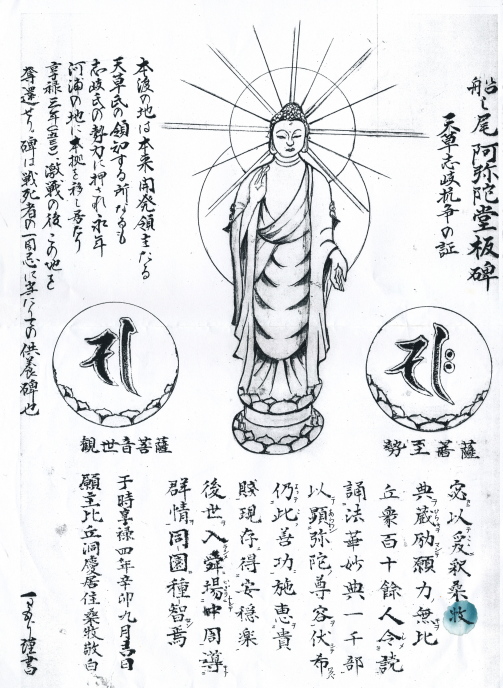 船之尾阿弥陀堂板碑
天草志岐抗争の証
本渡の地は本来開発領主たる
天草氏の領知する所なるも
志岐氏の勢力に押され永年
河浦の地に本拠を移し居たり
享禄三年 激戦の後この地を
奪還せり 碑は戦死者の一周忌に当たりその供養碑也
勢至菩薩
観世音菩薩
以爰釈桑牧
典蔵励願力無比
丘衆百十餘人令説
誦法華妙典一千部
以顕弥陀尊容伏布
仍此善功施恵貴
賤現存得安穏楽
後世入舜場中周導
群情同圓種智焉
于時享禄四年辛卯九月吉日
願主比丘洞慶居住桑牧敬白
謹書